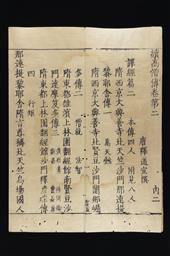 續高僧傳卷第二 内二
唐釋道宣撰
譯經篇二 本傳四人 附見八人
隋西京大興善寺北天竺沙門那連
耶舍傳一 萬天懿
隋西京大興善寺北賢豆沙門闍那崛
多傳二 僧就 法智
隋東都雒濱上林園翻經館南賢豆沙
門達摩笈多傳三
隋東都上林園翻經館沙門釋彥琮傳
四 行矩
那連提黎耶舍隋言尊稱北天竺烏場國人